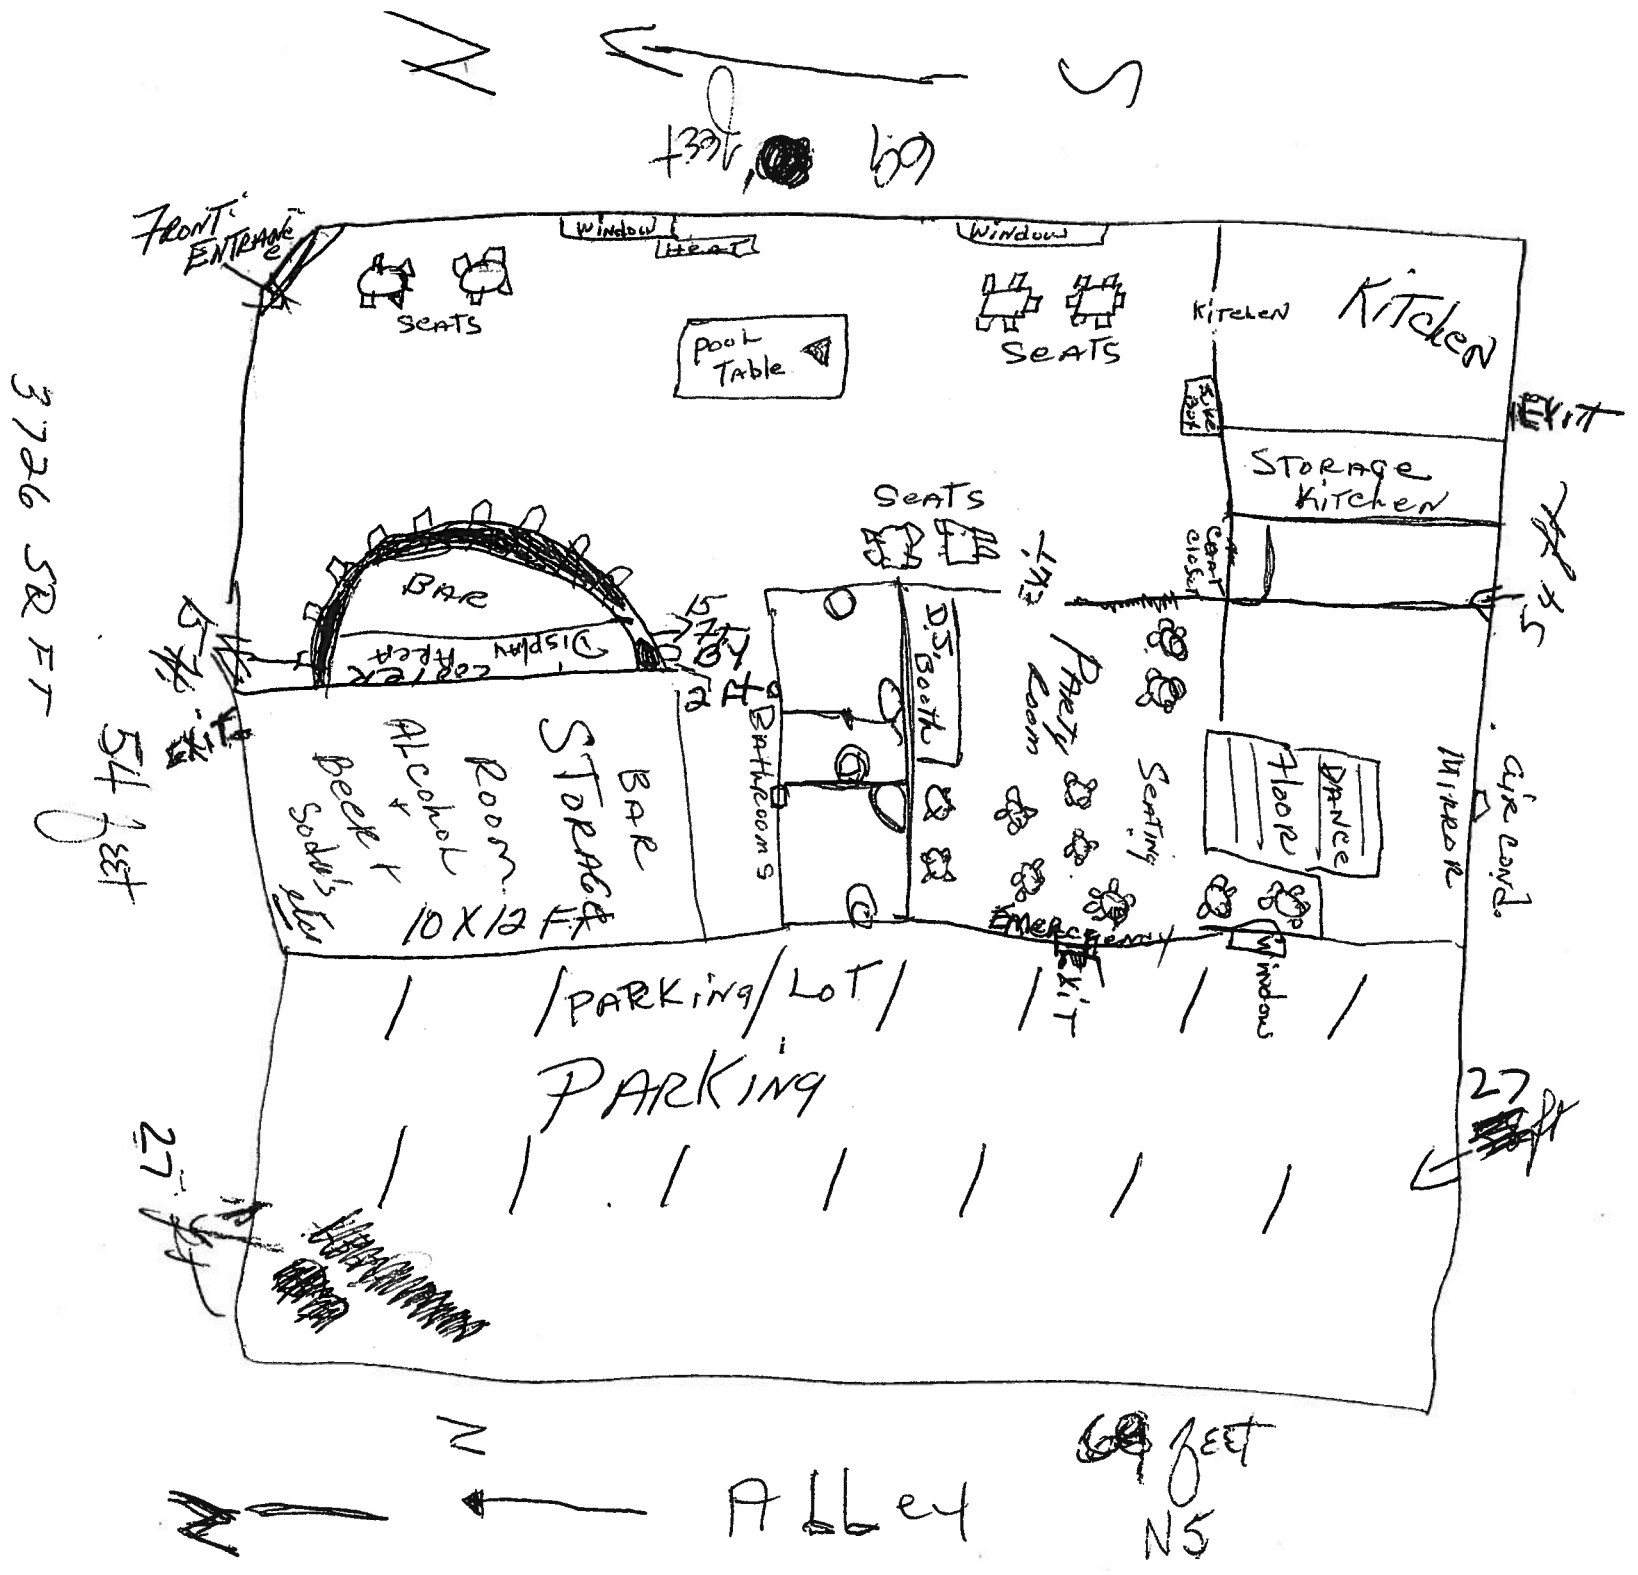 N
S
69 feet
FRONT
ENTRANE
Window
HEAT
Window
SEATS
Pool
Table
SEATS
KiTchen
KiTchen
JUKE
BOX
EXIT
STORAGE
KiTchen
SEATS
EXIT
COAT
Closet
54
3726 SQ FT
54 FEET
BAR
Display
AREA
15
2 FT
Exit
BAR
STORAGE
ROOM
ALcohoL
&
Beer &
Soda's
etc
10 X 12 FT
BAThrooms
D.J. Booth
PARTY
Room
SEATING
DANCE
FLOOR
MIRROR
Air cond.
EMERGENCY
EXIT
Window
PARKing LOT
PARKing
27 ft
27
N
ALLey
69 feet
N5